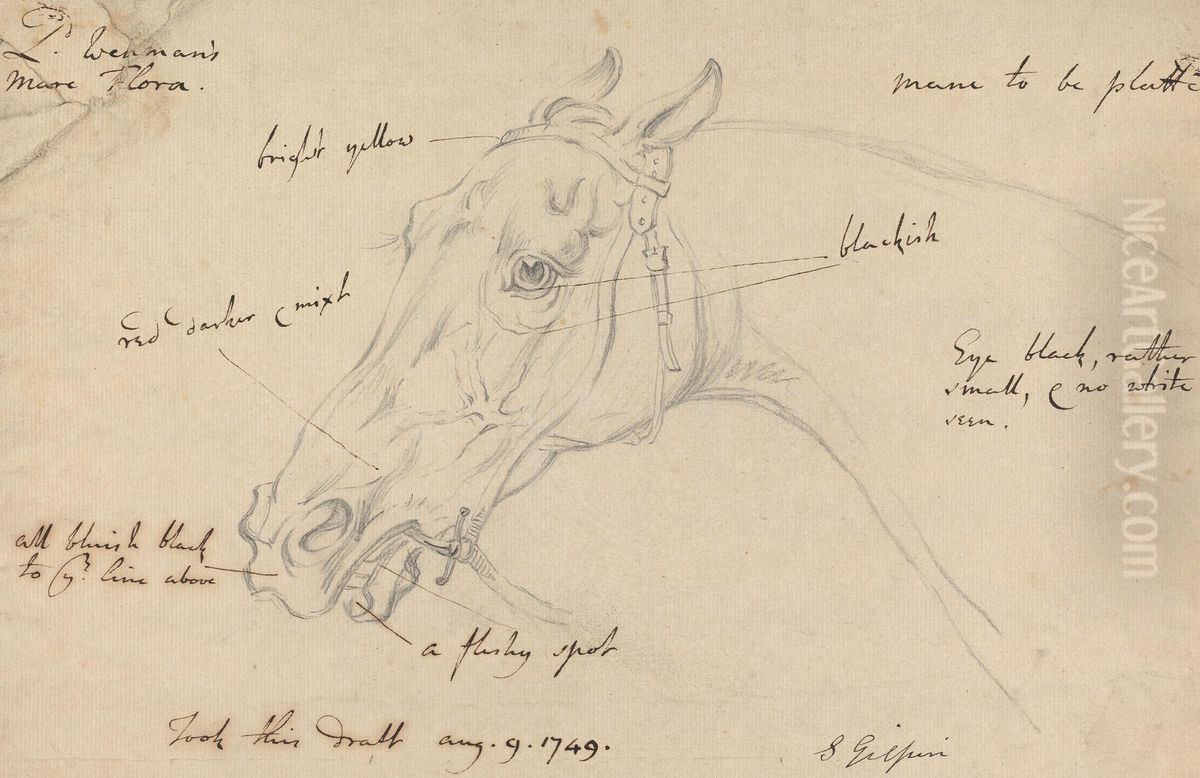 L.d Wenman's
Mare Flora.
mane to be platte
bright yellow
blackish
red darker & mixt
Eye black, rather
small, & no white
seen.
all bluish black
to ye. line above
a fleshy spot
Took this Draft aug. 9. 1749.
S Gilpin
NiceArtGallery.com